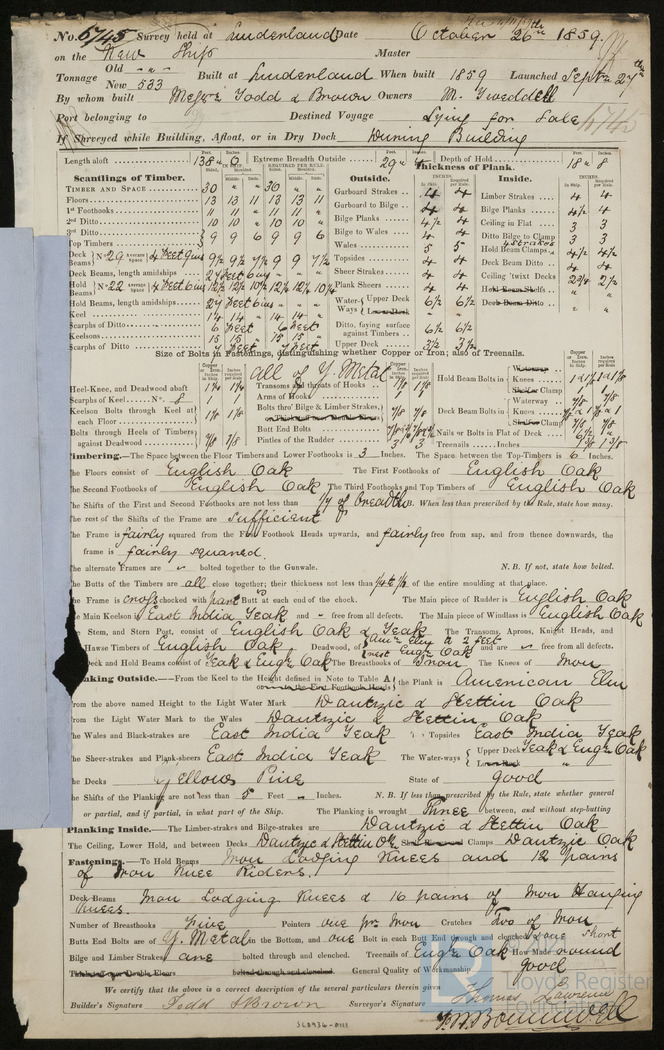 No. 6745 Survey held at Sunderland Date October 26th 1859
on the New Ship Master
Tonnage Old " " New 533 Built at Sunderland When built 1859 Launched Septr 27th
By whom built Messrs Todd & Brown Owners M. Tweddell
Port belonging to Destined Voyage Lying for Sale
If Surveyed while Building, Afloat, or in Dry Dock During Building
Length aloft 138 " 6 Extreme Breadth Outside 29 " 4 Depth of Hold 18 " 8
Scantlings of Timber.
Timber and Space 30 " " 30 " "
Floors 13 13 11 13 13 11
1st Foothooks 11 11 " 11 11 "
2nd Ditto 10 10 " 10 10 "
3rd Ditto
Top Timbers 9 9 6 9 9 6
Deck Beams No. 29 Average Space 4 feet 9 ins 9½ 9½ 7½ 9 9 7½
Deck Beams, length amidships 27 feet 6 ins
Hold Beams No. 22 Average Space
Hold Beams, length amidships 27 feet 6 ins
Keel 14 14 " 14 14 "
Scarphs of Ditto 6 feet 6 feet
Keelsons 15 15 15 15 "
Scarphs of Ditto 7 feet 7 feet
Thickness of Plank.
Outside.
Garboard Strakes 4 4
Garboard to Bilge 4 4
Bilge Planks 4½ 4
Bilge to Wales 4 4
Wales 5 5
Topsides 4 4
Sheer Strakes 4 4
Plank Sheers 4 4
Water-Ways Upper Deck 6½ 6½
Lower Deck
Ditto, faying surface against Timbers 6½ 6½
Upper Deck 3½ 3½
Inside.
Limber Strakes 4 4
Bilge Planks 4½ 4
Ceiling in Flat 3 3
Ditto Bilge to Clamp 3 3
Hold Beam Clamps 4 strakes 4½ 4½
Deck Beam Ditto 4 4
Ceiling 'twixt Decks 2¾ 2½
Hold Beam Shelfs " "
Deck Beam Ditto " "
Size of Bolts in Fastenings, distinguishing whether Copper or Iron; also of Treenails.
all of Y. Metal
Heel-Knee, and Deadwood abaft
Scarphs of Keel No. 8
Keelson Bolts through Keel at each Floor 1⅛ 1⅛
Bolts through Heels of Timbers against Deadwood ⅞ ⅞
Transoms and throats of Hooks
Arms of Hooks
Bolts thro' Bilge & Limber Strakes, ⅞ ⅞
Butt End Bolts
Pintles of the Rudder 3 3
Hold Beam Bolts in Waterway
Knees
Shelf or Clamp
Deck Beam Bolts in Waterway
Knees
Shelf or Clamp
Nails or Bolts in Flat of Deck
Treenails Inches
Timbering.—The Space between the Floor Timbers and Lower Foothooks is 3 Inches. The Space between the Top-Timbers is 6 Inches.
The Floors consist of English Oak The First Foothooks of English Oak
The Second Foothooks of English Oak The Third Foothooks and Top Timbers of English Oak
The Shifts of the First and Second Foothooks are not less than 1/7 of breadth N.B. When less than prescribed by the Rule, state how many.
The rest of the Shifts of the Frame are sufficient
The Frame is fairly squared from the First Foothook Heads upwards, and fairly free from sap, and from thence downwards, the
frame is fairly squared.
The alternate Frames are " bolted together to the Gunwale. N.B. If not, state how bolted.
The Butts of the Timbers are all close together; their thickness not less than ¼ to ⅓ of the entire moulding at that place.
The Frame is cross chocked with part Butt at each end of the chock. The Main piece of Rudder is English Oak
The Main Keelson is East India Teak and " free from all defects. The Main piece of Windlass is English Oak
The Stem, and Stern Post, consist of English Oak & Teak The Transoms, Aprons, Knight Heads, and
Hawse Timbers of English Oak Deadwood, of Amn. Elm to 2 feet rest Engh. Oak and are " free from all defects.
Deck and Hold Beams consist of Teak & Engh Oak The Breasthooks of Iron The Knees of Iron
Planking Outside.—From the Keel to the Height defined in Note to Table A or to the First Foothook Heads the Plank is American Elm
From the above named Height to the Light Water Mark Dantzic & Stettin Oak
From the Light Water Mark to the Wales Dantzic & Stettin Oak
The Wales and Black-strakes are East India Teak Topsides East India Teak
The Sheer-strakes and Plank-sheers East India Teak The Water-ways Upper Deck Teak & Engh Oak
Lower Deck "
The Decks Yellow Pine State of good
The Shifts of the Planking are not less than 5 Feet " Inches. N.B. If less than prescribed by the Rule, state whether general
or partial, and if partial, in what part of the Ship. The Planking is wrought Three between, and without step-butting
Planking Inside.—The Limber-strakes and Bilge-strakes are Dantzic & Stettin Oak
The Ceiling, Lower Hold, and between Decks Dantzic & Stettin Ok Shelf Pieces and Clamps Dantzic Oak
Fastenings.—To Hold Beams Iron Lodging Knees and 12 pairs
of Iron Knee Riders.
Deck-Beams Iron Lodging Knees & 16 pairs of Iron Hanging
Knees.
Number of Breasthooks Five Pointers one pr. Iron Crutches Two of Iron
Butts End Bolts are of Y. Metal in the Bottom, and one Bolt in each Butt End through and clenched & one short
Bilge and Limber Strakes are bolted through and clenched. Treenails of Engh Oak How Made round
bolted through and clenched. General Quality of Workmanship good
We certify that the above is a correct description of the several particulars herein given
Builder's Signature Todd & Brown Surveyor's Signature Thomas Lawrence
© 2021
Lloyd's Register
Foundation
SLD936-0111